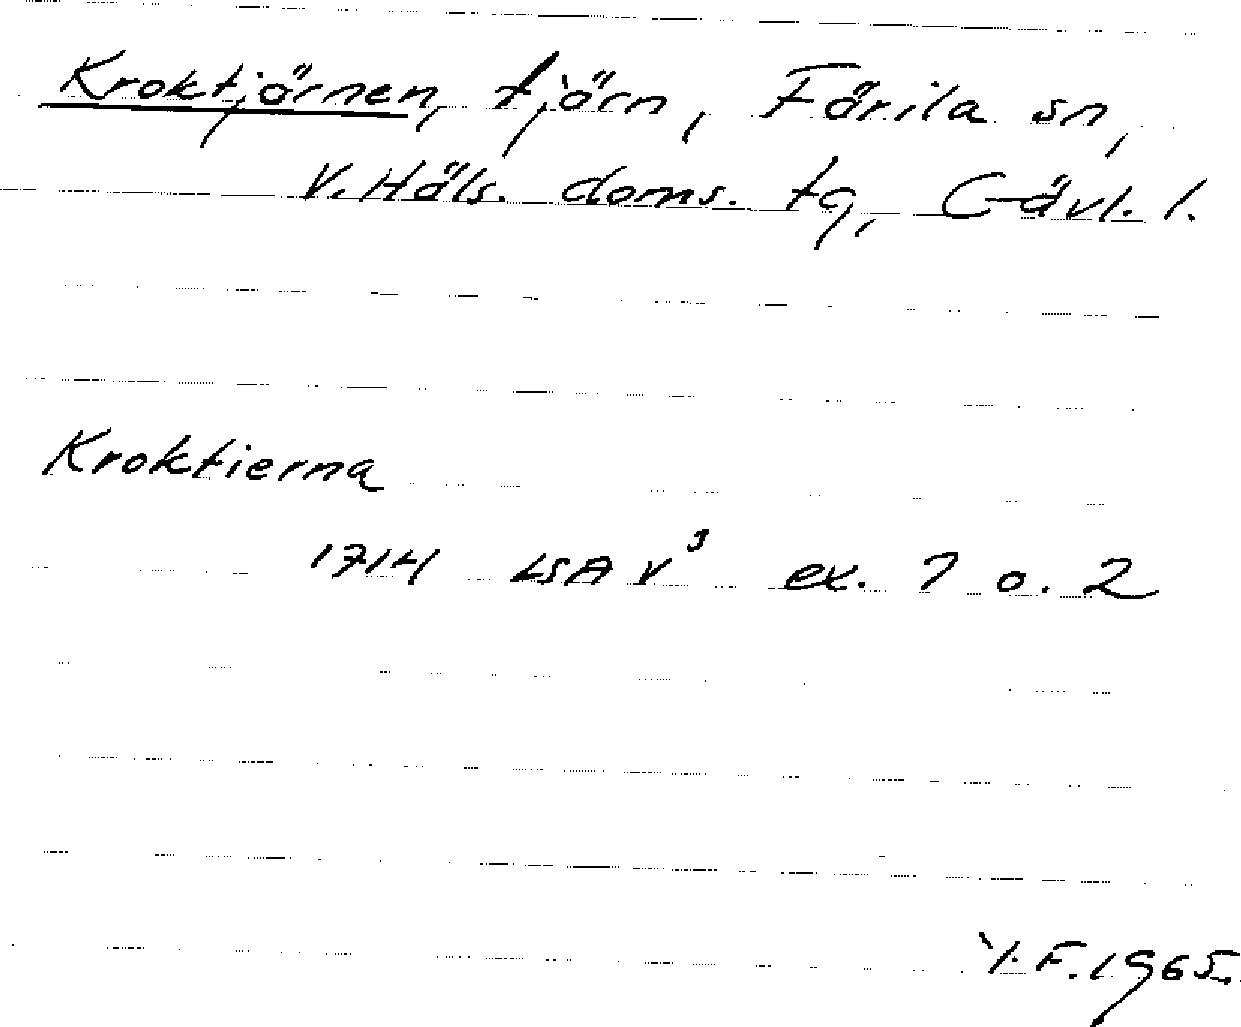 Kroktjärnen, tjärn, Färila sn,
V. Häls. doms. tg, Gävl. l.
Kroktierna
1714 LSA V³ ex. 1 o. 2
Y.F. 1965.